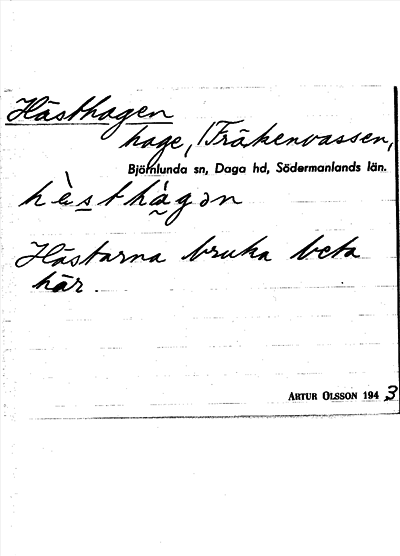 Hästhagen
hage, Fräkenvassen,
Björnlunda sn, Daga hd, Södermanlands län.
hὲsthàgən
Hästarna bruka beta
här.
ARTUR OLSSON 1943